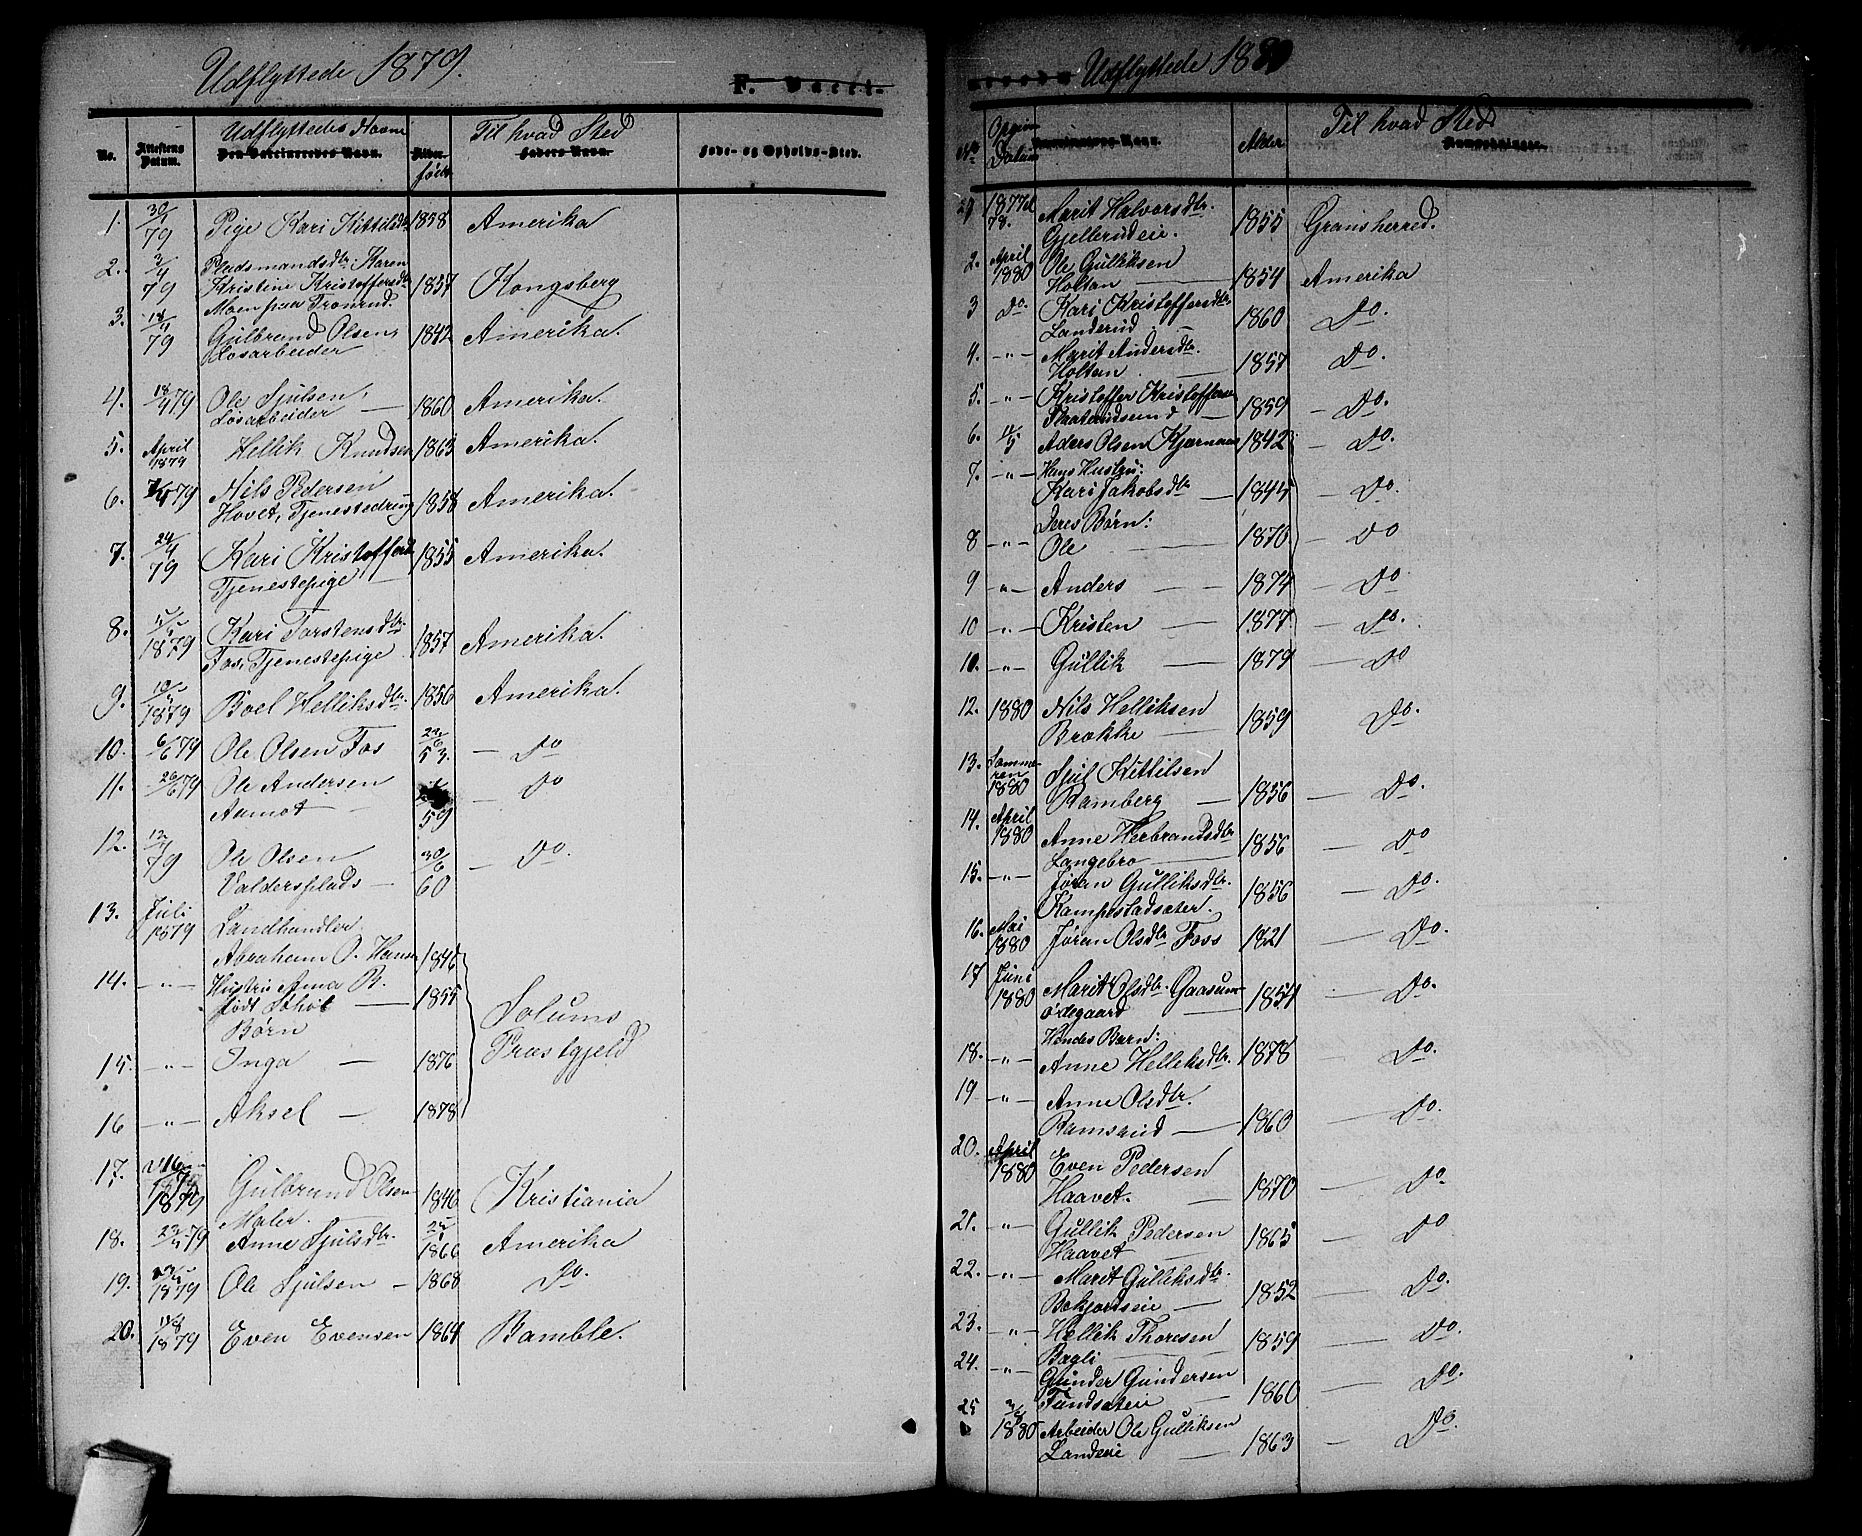 Udflyttede 1879.
F. Vacci-
No. Attestens Datum. Udflyttedes Navne Den Vaccineredes Navn. Alder født Til hvad Sted Faders Navn Føde- og Opholds-Sted.
1. 30/1 79 Pige Kari Kittilsdtr 1858 Amerika
2. 3/4 79 Pladsmandsdtr: Karen
Kristine Kristoffersdtr 1857 Kongsberg
Moen paa Tronrud.
3. 18/4 79 Gulbrand Olsen, 1842 Amerika.
Løsarbeider
4. 18/4 79 Ole Sjulsen, 1860 Amerika.
Løsarbeider —
5. April 1879 Hellik Knudsen 1863 Amerika.
6. 79 Nils Pedersen
Hovet, Tjenestedreng 1858 Amerika.
7. 24/4 79 Kari Kristoffersd 1855 Amerika.
Tjenestepige —
8. 1879 Kari Torstensdtr
Fos, Tjenestepige 1857 Amerika.
9. 10/5 1879 Boel Helliksdtr. 1856 Amerika.
10. 6/6 79 Ole Olsen Fos 53. — Do
11. 26/6 79 Ole Andersen
Aamot — 59 — Do
12. 79 Ole Olsen 30/6 60 — Do.
Valdersplads —
13. Juli 1879 Landhandler
Abraham O. Hansen 1846
14. — " — Hustru Anna B.
født — 1855 Solums
Børn
15. — " — Inga — 1876 Præstgjeld
16 — " — Aksel — 1878
17. 1879 Gulbrand Olsen 1846 Kristiania
Maler.
18. 79 Anne Sjulsdtr. 1866 Amerika
19. 1879 Ole Sjulsen — 1868 Do.
20. 1879 Even Evensen 1864 Bamble.
Udflyttede 1880
No Datum Alder Til hvad Sted Anmærkninger.
1877 78. Marit Halvorsdtr.
Gjellerudeie. 1855 Gransherred.
2. April 1880 Ole Gulliksen
Holtan — 1854 Amerika
3 Do. Kari Kristoffersdtr
Landerud. — 1860 Do.
4. — " — Marit Andersdtr.
Holtan. — 1857 Do.
5. — " — Kristoffer Kristoffersen
— 1859 — Do.
6. Aders Olsen Kjørnaas 1842 — Do.
7. — " — Hans Hustru:
Kari Jakobsdtr — 1845 — Do.
Deres Børn:
8 — " — Ole — 1870 — Do
9 — " — Anders — 1874 — Do.
10 — " — Kristen — 1877 — Do.
10. — " — Gullik — 1879 — Do
12. 1880 Nils Helliksen
Brække — 1859 Do.
13. Sommeren 1880 Sjul Kittilsen
Ramberg — 1856 — Do.
14. April 1880 Anne Herbrandsdtr
Langebro — 1856 — Do
15. — " — Jøran Gulliksdtr.
Kampestadsæter. 1856 — Do.
16. Mai 1880 Jøran Olsdtr Foss 1821 — Do.
17 Juni 1880 Marit Olsdtr. Gaasum-
ødegaard — 1854 — Do.
Hendes Barn:
18. — " — Anne Helliksdtr. 1878 — Do.
19 — " — Anne Olsdtr.
Ramsrud — 1860 — Do.
20. April 1880 Even Pedersen
Haavet. — 1870 — Do.
21. — " — Gullik Pedersen
Haavet — 1865 — Do
22. — " — Marit Gulliksdtr.
— 1852 — Do.
23. — " — Hellik Thoresen
Bagli — 1859 — Do.
24. — " — Gunder Gundersen
— 1860 — Do.
25 1880 Arbeider Ole Gulliksen
Landeie — 1863 — Do.